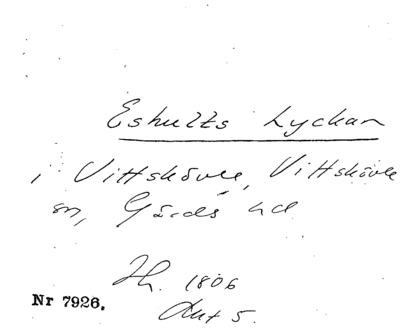 Eshults Lyckan
i Vittskövle, Vittskövle
sn, Gärds hd
Jh. 1806
Akt 5.
Nr 7926.